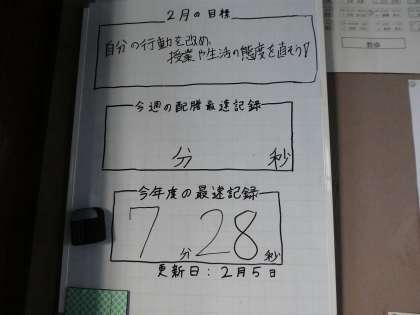 2月の目標
自分の行動を改め、
授業や生活の態度を直そう!
今週の配膳最速記録
分 秒
今年度の最速記録
7分28秒
更新日:2月5日